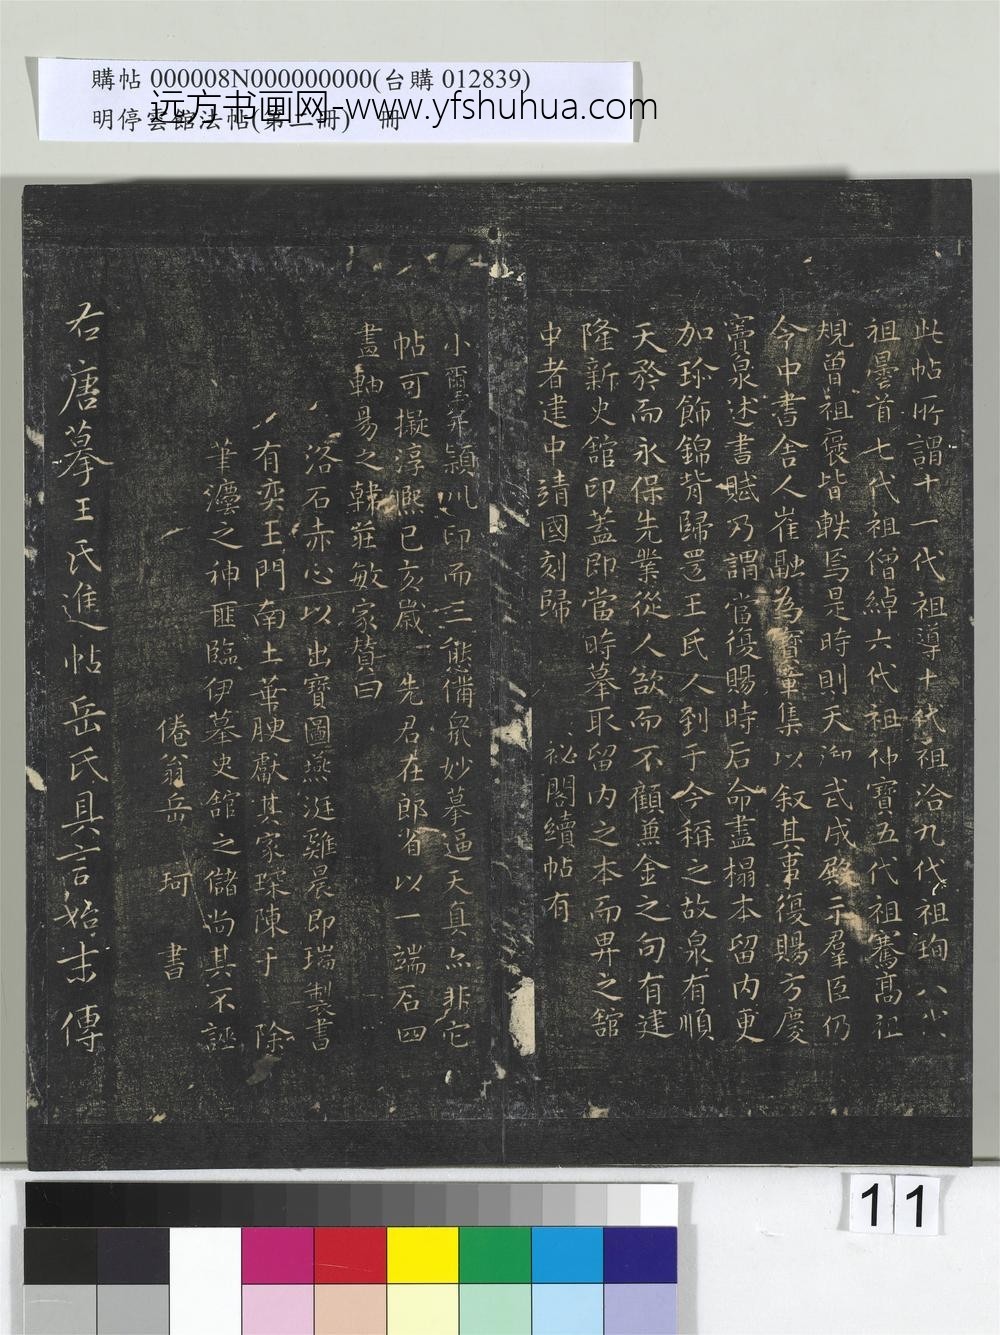 購帖 000008N000000000(台購 012839)
明停雲館法帖(第二冊) 冊
远方书画网-www.yfshuhua.com
此帖所謂十一代祖導十代祖洽九代祖珣八小
祖曇首七代祖僧綽六代祖仲寶五代祖騫高祖
規曾祖褒皆軼焉是時則天御武成殿示羣臣仍
今中書舍人崔融為寶章集以叙其事復賜方慶
竇泉述書賦乃謂當復賜時后命盡榻本留內更
加珎飾錦背歸還王氏人到于今稱之故泉有順
天矜而永保先業從人欲而不顧蒹金之句有建
隆新史館印蓋即當時摹取留內之本而畀之館
中者建中靖國刻歸 祕閣續帖有
小璽弁潁川印而三態備眾妙摹逼天真亦非它
帖可擬淳熈已亥歲 先君在郎省以一端石四
畫軸易之韓莊敏家贊曰
洛石赤心以出寶圖燕涎雞晨即瑞製書
有奕王門南土華腴獻其家琛陳于 除
筆灋之神匪臨伊摹史館之儲尚其不誣
倦翁岳 珂 書
右唐摹王氏進帖岳氏具言始末傳
11